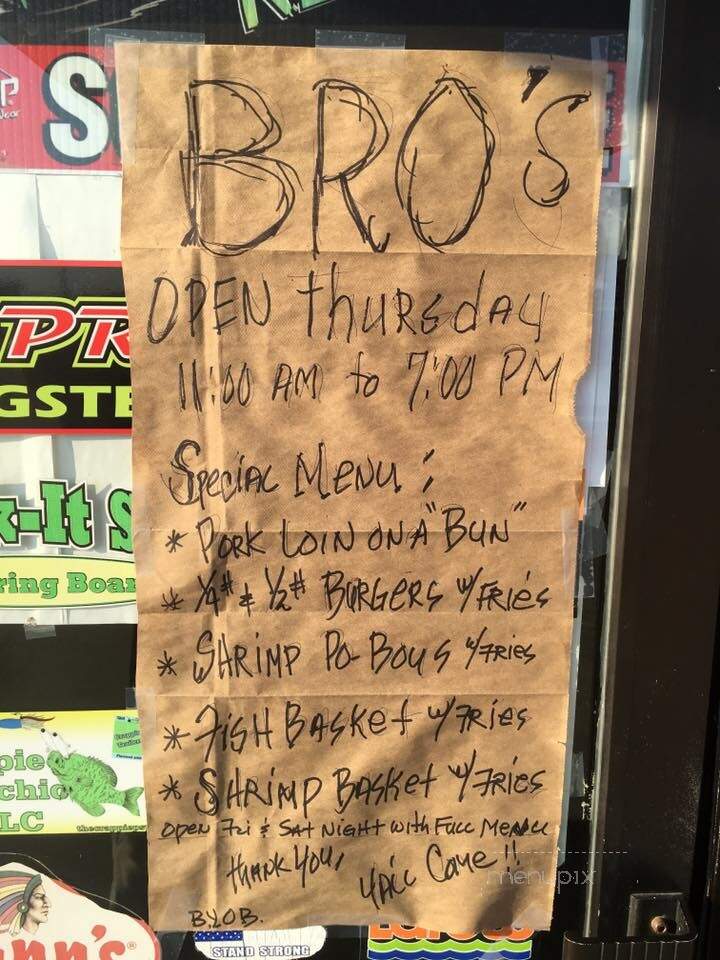 BRO's
OPEN thURSdAY
11:00 AM to 7:00 PM
Special Menu:
* PORK LOIN ON A "BUN"
* 1/4# & 1/2# BURGERS w/FRIES
* SHRIMP PO-BOYS w/FRIES
* FISH BASKEt w/FRIES
* SHRIMP BASKEt w/FRIES
OPEN FRI & SAt NIGHt with FULL MENU
tHANK YOU,
YALL COME!!
B.Y.O.B.
menupix
PR
GSTE
-It S
ring Boar
pie
chie
LC
thecrappieps
nn's
STAND STRONG